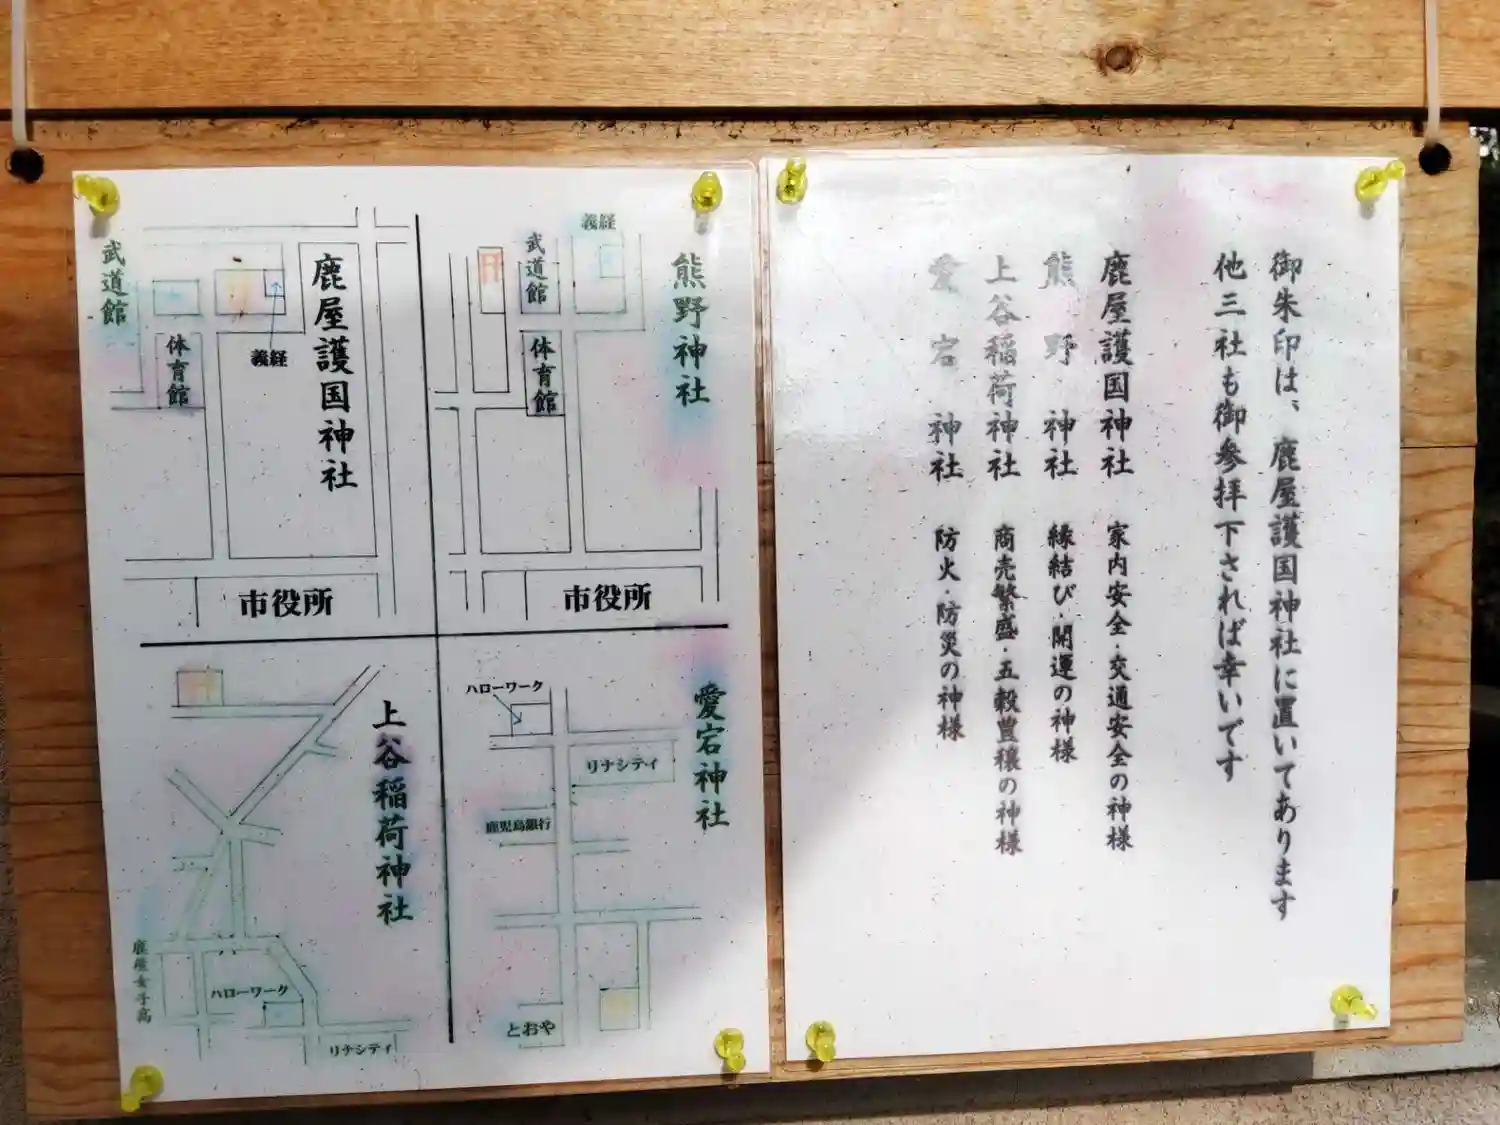 御朱印は、鹿屋護国神社に置いてあります
他三社も御参拝下されば幸いです
鹿屋護国神社 家内安全・交通安全の神様
熊野神社 縁結び・開運の神様
上谷稲荷神社 商売繁盛・五穀豊穣の神様
愛宕神社 防火・防災の神様
熊野神社
義経
武道館
体育館
市役所
鹿屋護国神社
義経
武道館
体育館
市役所
愛宕神社
ハローワーク
リナシティ
鹿児島銀行
とおや
上谷稲荷神社
鹿屋女子高
ハローワーク
リナシティ